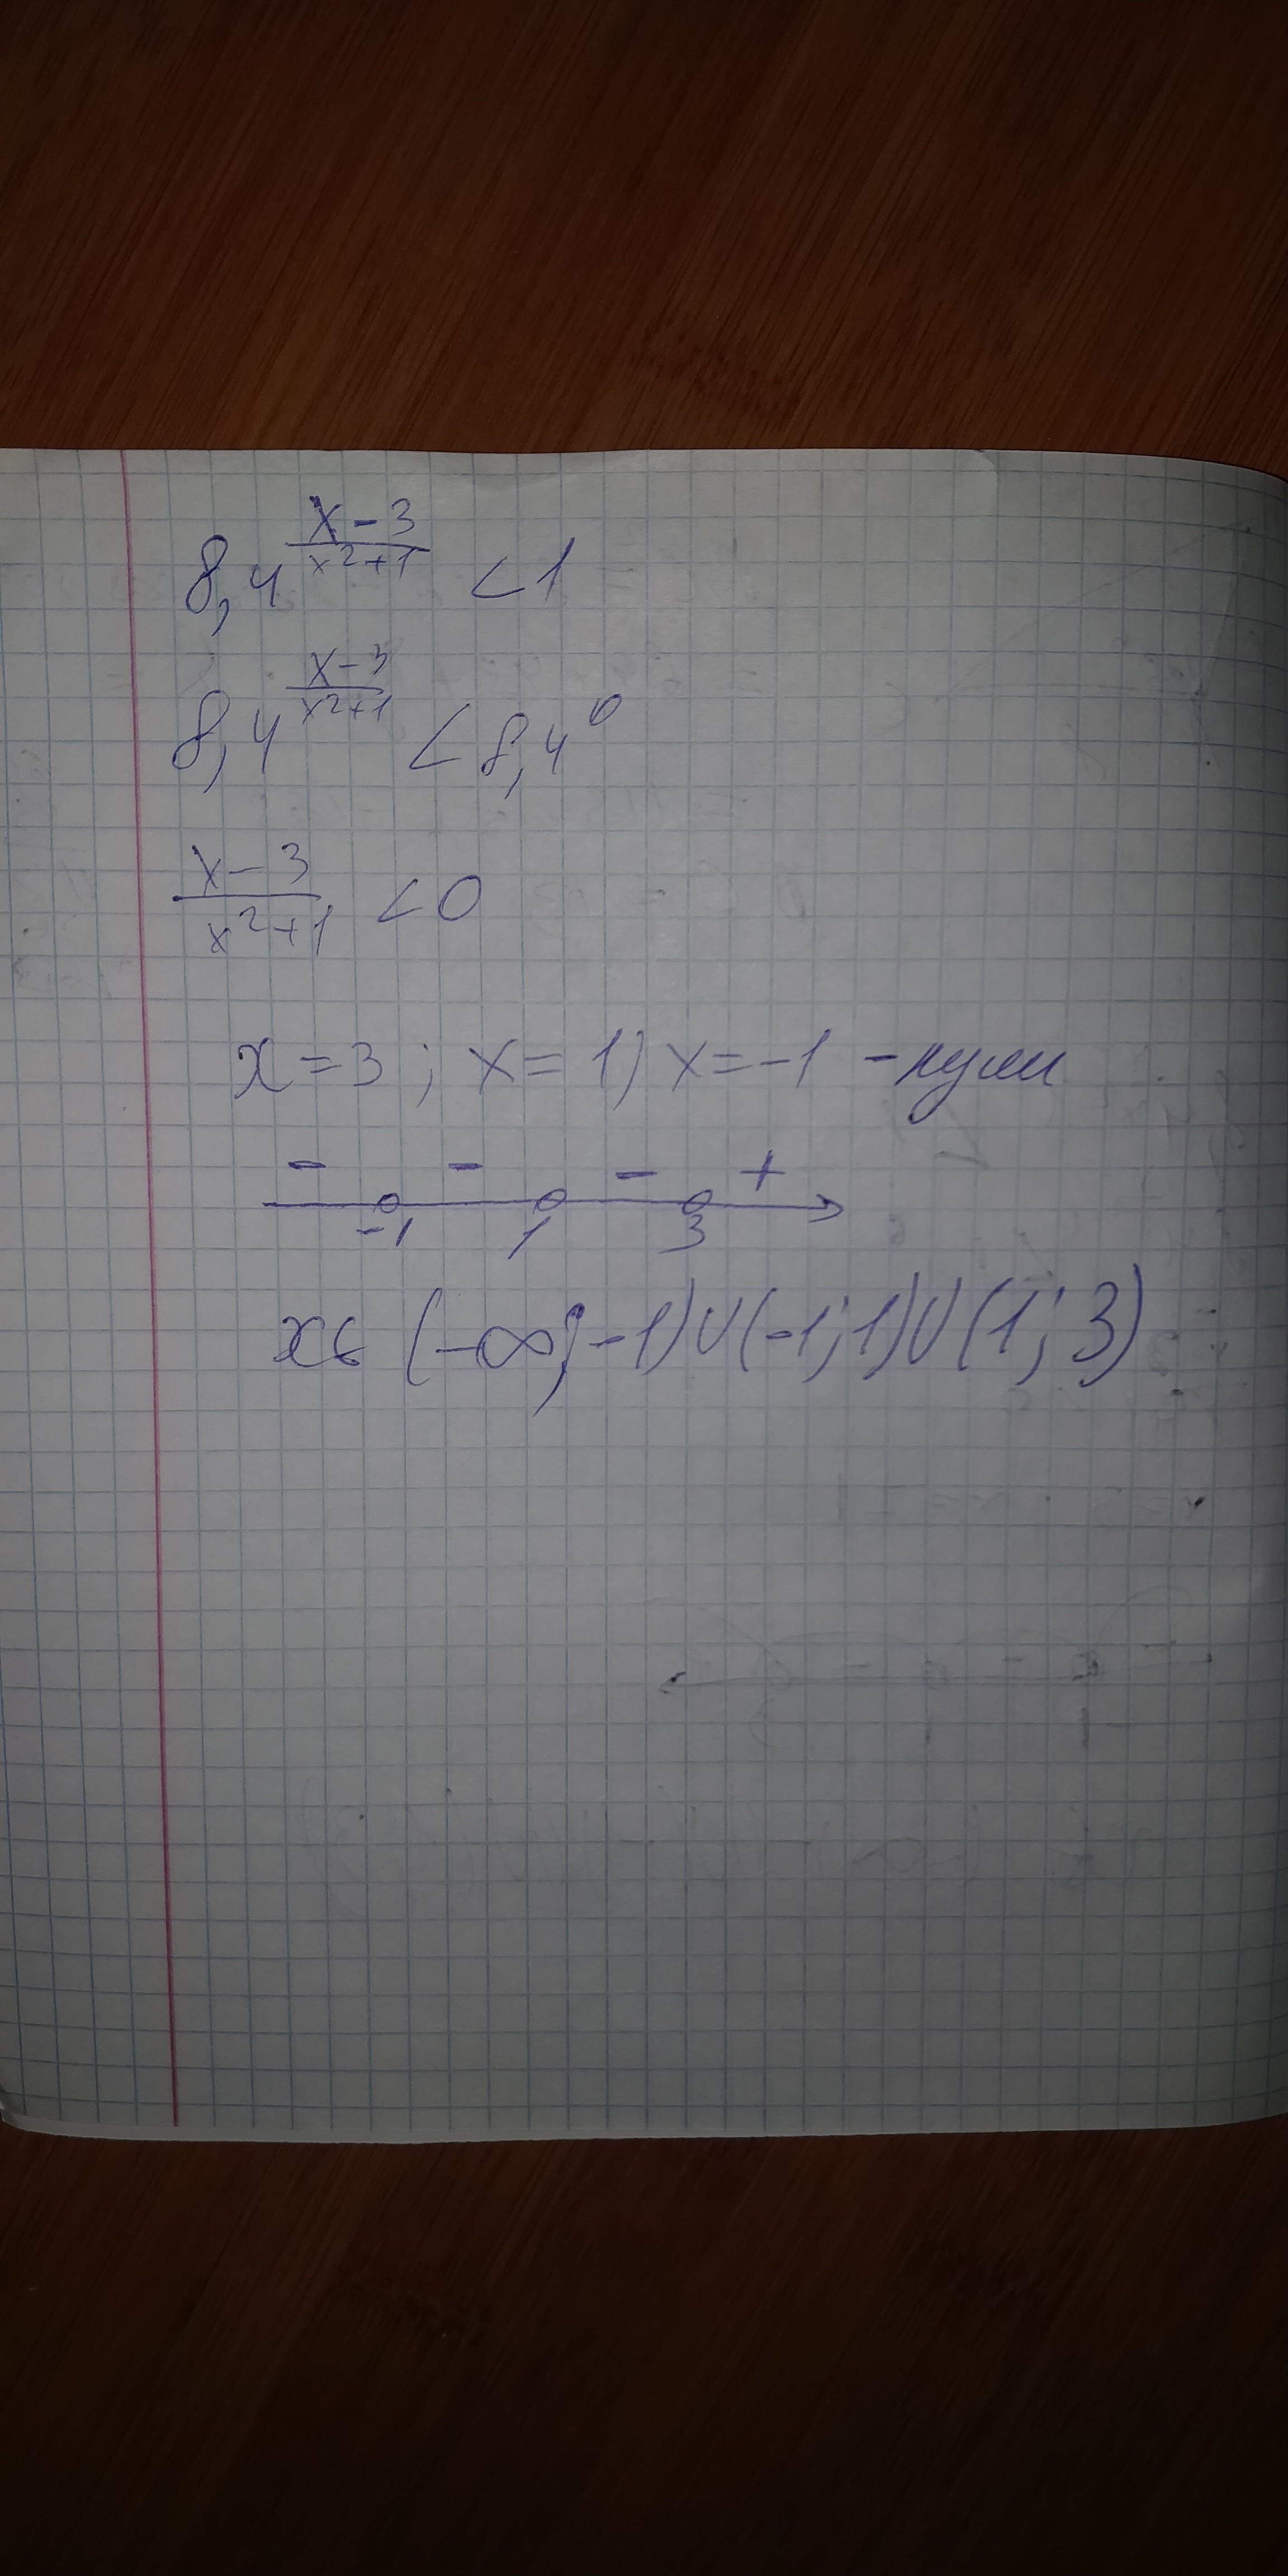 8,4^((x-3)/(x²+1)) < 1
8,4^((x-3)/(x²+1)) < 8,4⁰
(x-3)/(x²+1) < 0
x = 3 ; x = 1 ; x = -1 - нули
- - - +
-1 1 3
x ∈ (-∞; -1) ∪ (-1; 1) ∪ (1; 3)